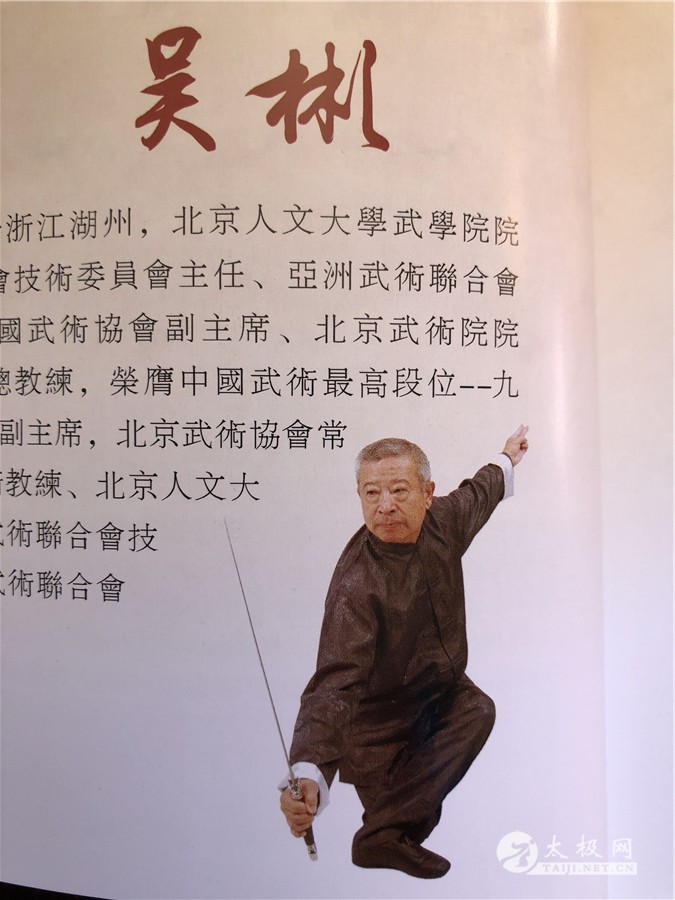 吴彬
浙江湖州，北京人文大學武學院院
會技術委員會主任、亞洲武術聯合會
國武術協會副主席、北京武術院院
總教練，榮膺中國武術最高段位--九
副主席，北京武術協會常
教練、北京人文大
術聯合會技
術聯合會
太极网
TAIJI.NET.CN